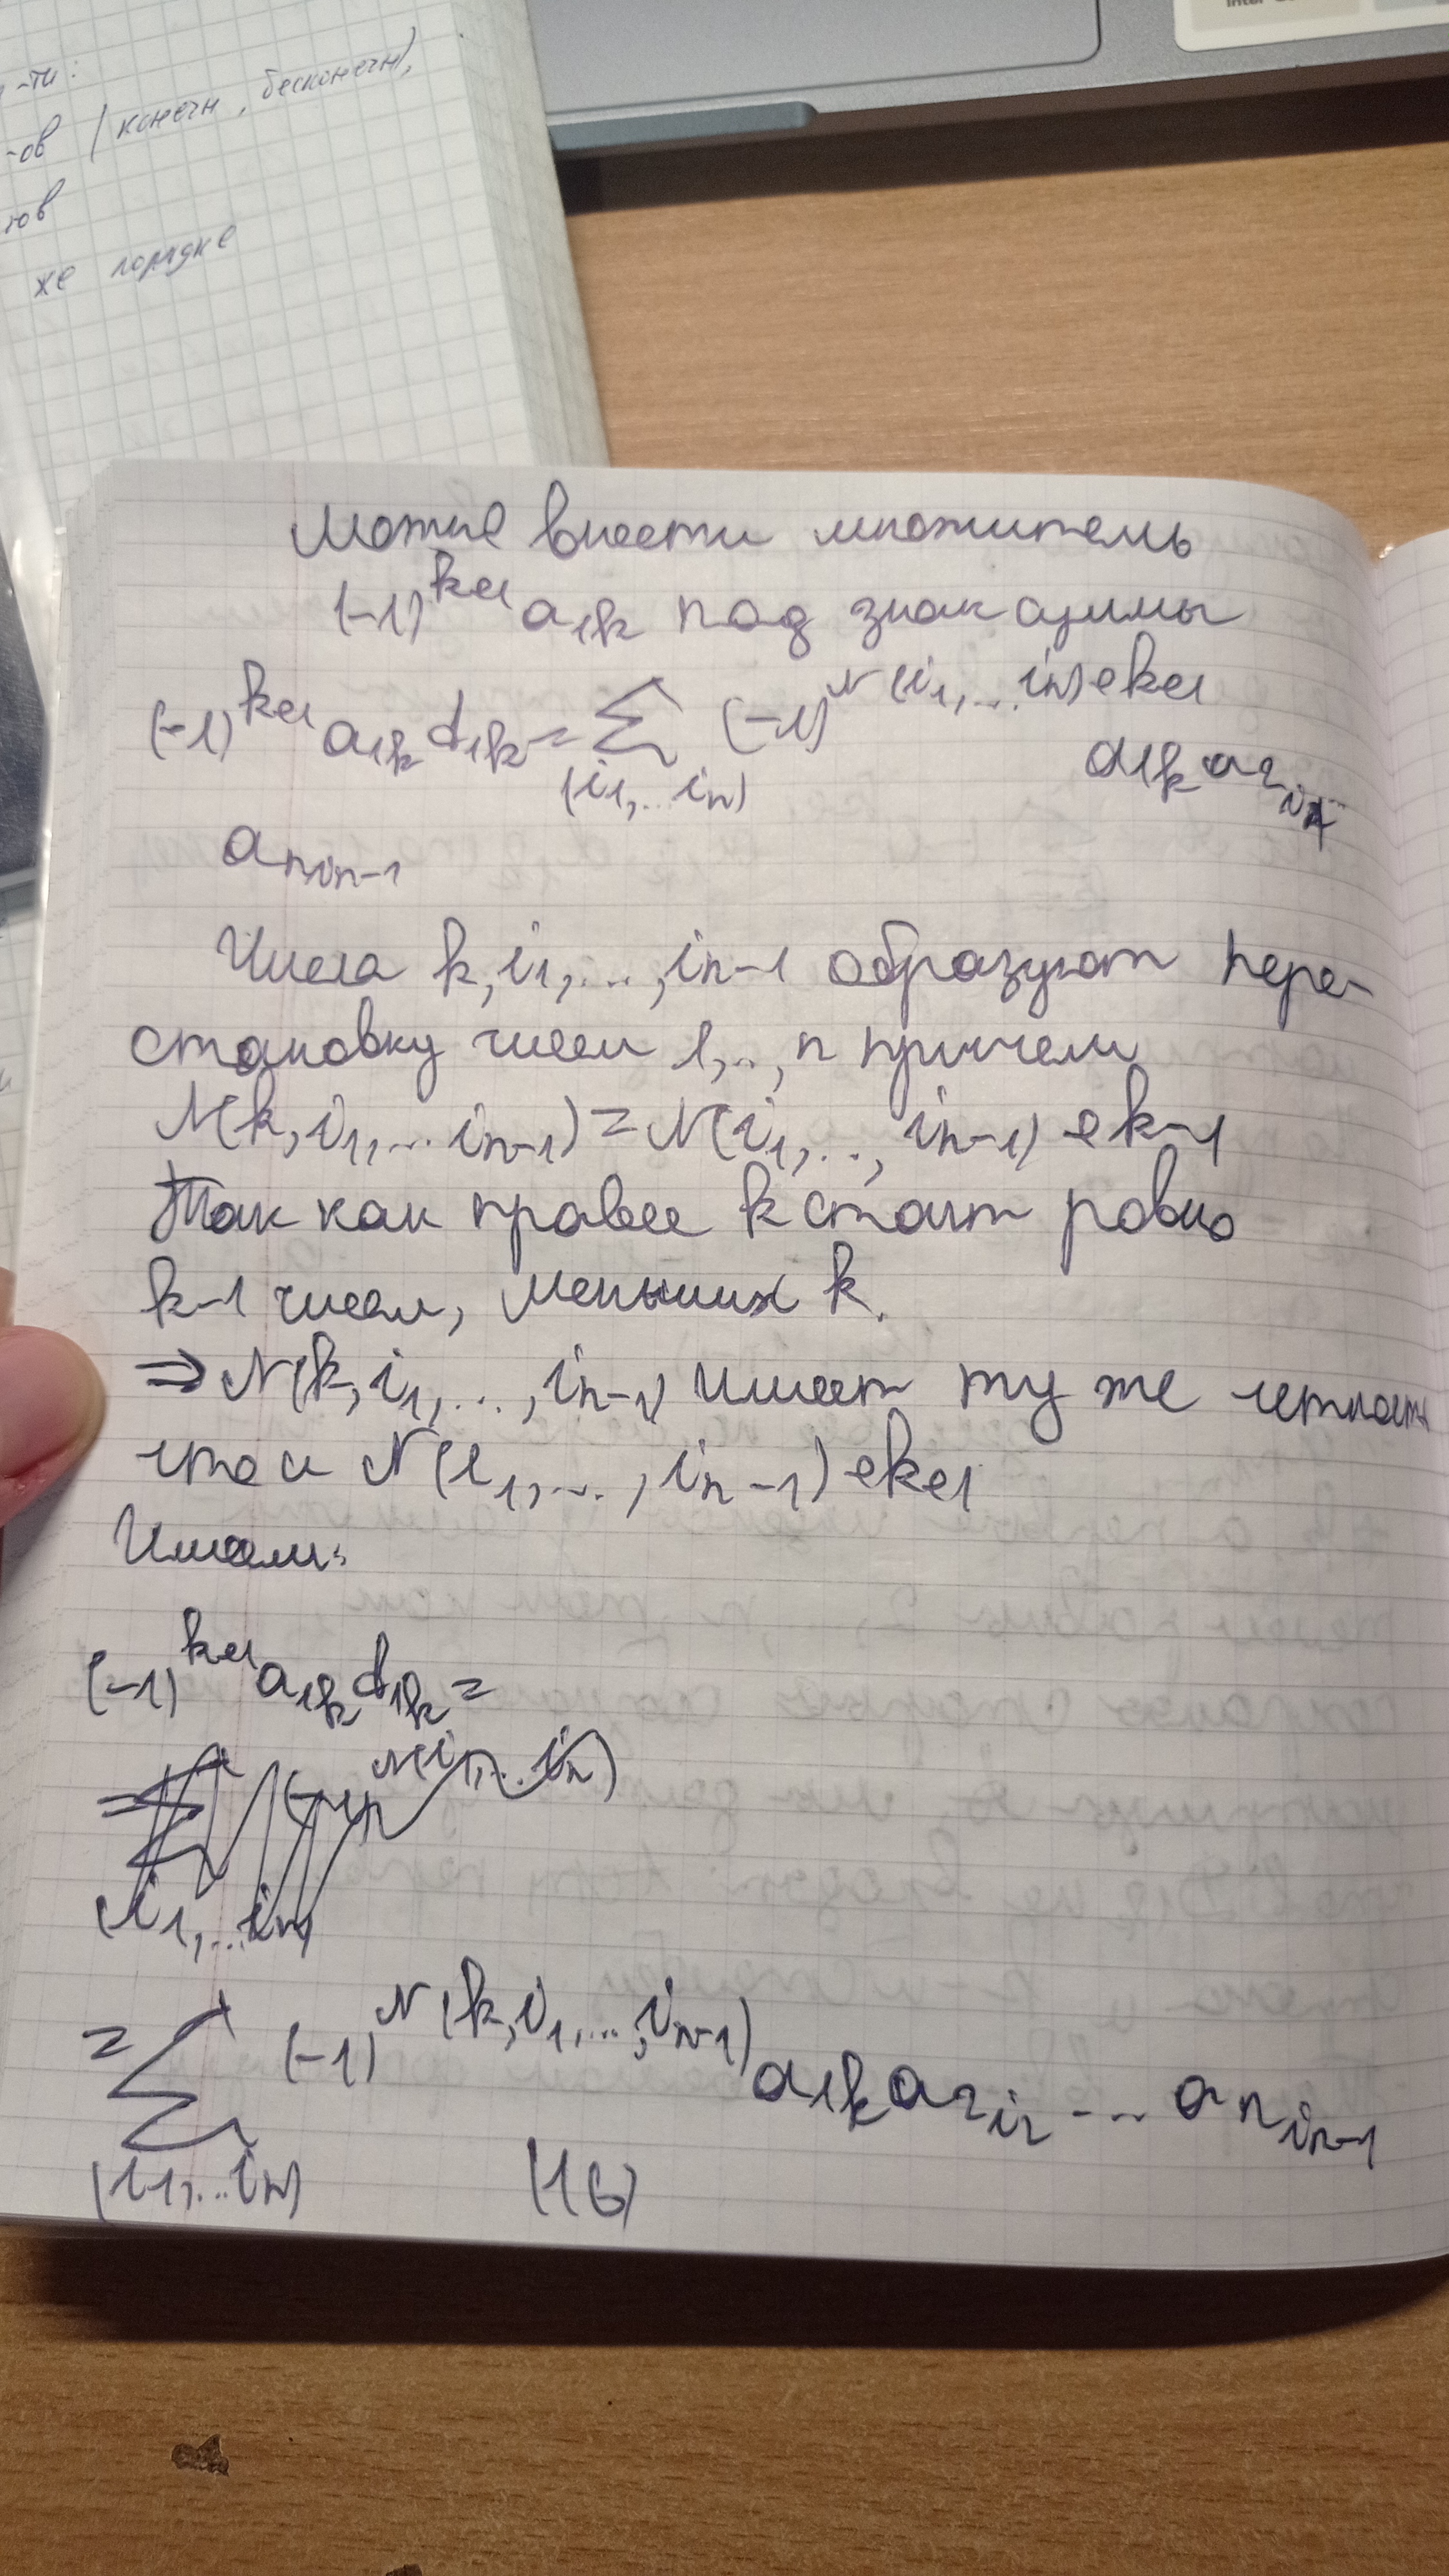 -ти:
-ов (конечн, бесконечн),
тов
же порядке
Можно внести множитель
(-1)^{k+1} a_{1k} под знак суммы
(-1)^{k+1} a_{1k} d_{1k} = Σ (-1)^{N(i_1,...i_n)+k+1}
(i_1,...i_n)
a_{1k} a_{2i_1}
a_{ni_{n-1}}
Числа k, i_1, ..., i_{n-1} образуют пере-
становку чисел 1,.., n причем
N(k, i_1, ... i_{n-1}) = N(i_1, ..., i_{n-1}) + k-1
Так как правее k стоит ровно
k-1 чисел, меньших k.
⇒ N(k, i_1, ..., i_{n-1}) имеет ту же четность
что и N(i_1, ..., i_{n-1}) + k+1
Имеем:
(-1)^{k+1} a_{1k} d_{1k} =
= Σ (-1)^{N(k, i_1, ..., i_{n-1})} a_{1k} a_{2i_2} ... a_{ni_{n-1}}
(i_1,...i_n)
(16)